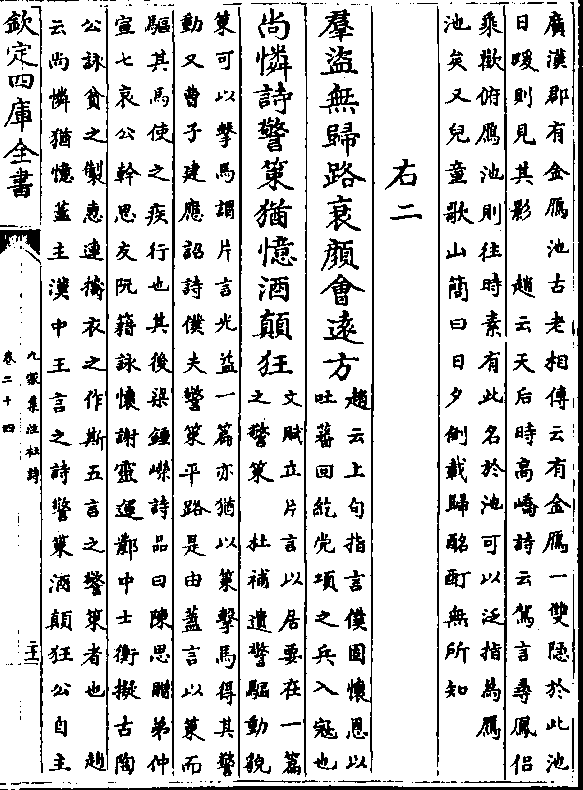 廣漢郡有金鴈池古老相傳云有金鴈一雙隱於此池
日暖則見其影　趙云天后時高嶠詩云駕言尋鳳侶
乘歡俯鴈池則往時素有此名於池可以泛指為鴈
池矣又兒童歌山簡曰日夕倒載歸酩酊無所知
右二
羣盜無歸路衰顔會遠方
趙云上句指言僕固懷恩以
吐蕃回紇党項之兵入寇也
尚憐詩警策猶憶酒顛狂
文賦立片言以居要在一篇
之警策　杜補遺警驅動貌
策可以擊馬謂片言光益一篇亦猶以策擊馬得其警
動又曹子建應詔詩僕夫警策平路是由蓋言以策而
驅其馬使之疾行也其後梁鍾嶸詩品曰陳思贈弟仲
宣七哀公幹思友阮籍詠懷謝靈運鄴中士衡擬古陶
公詠貧之製惠連擣衣之作斯五言之警策者也　趙
云尚憐猶憶蓋主漢中王言之詩警策酒顛狂公自主
欽定四庫全書
九家集注杜詩
卷二十四
二十三